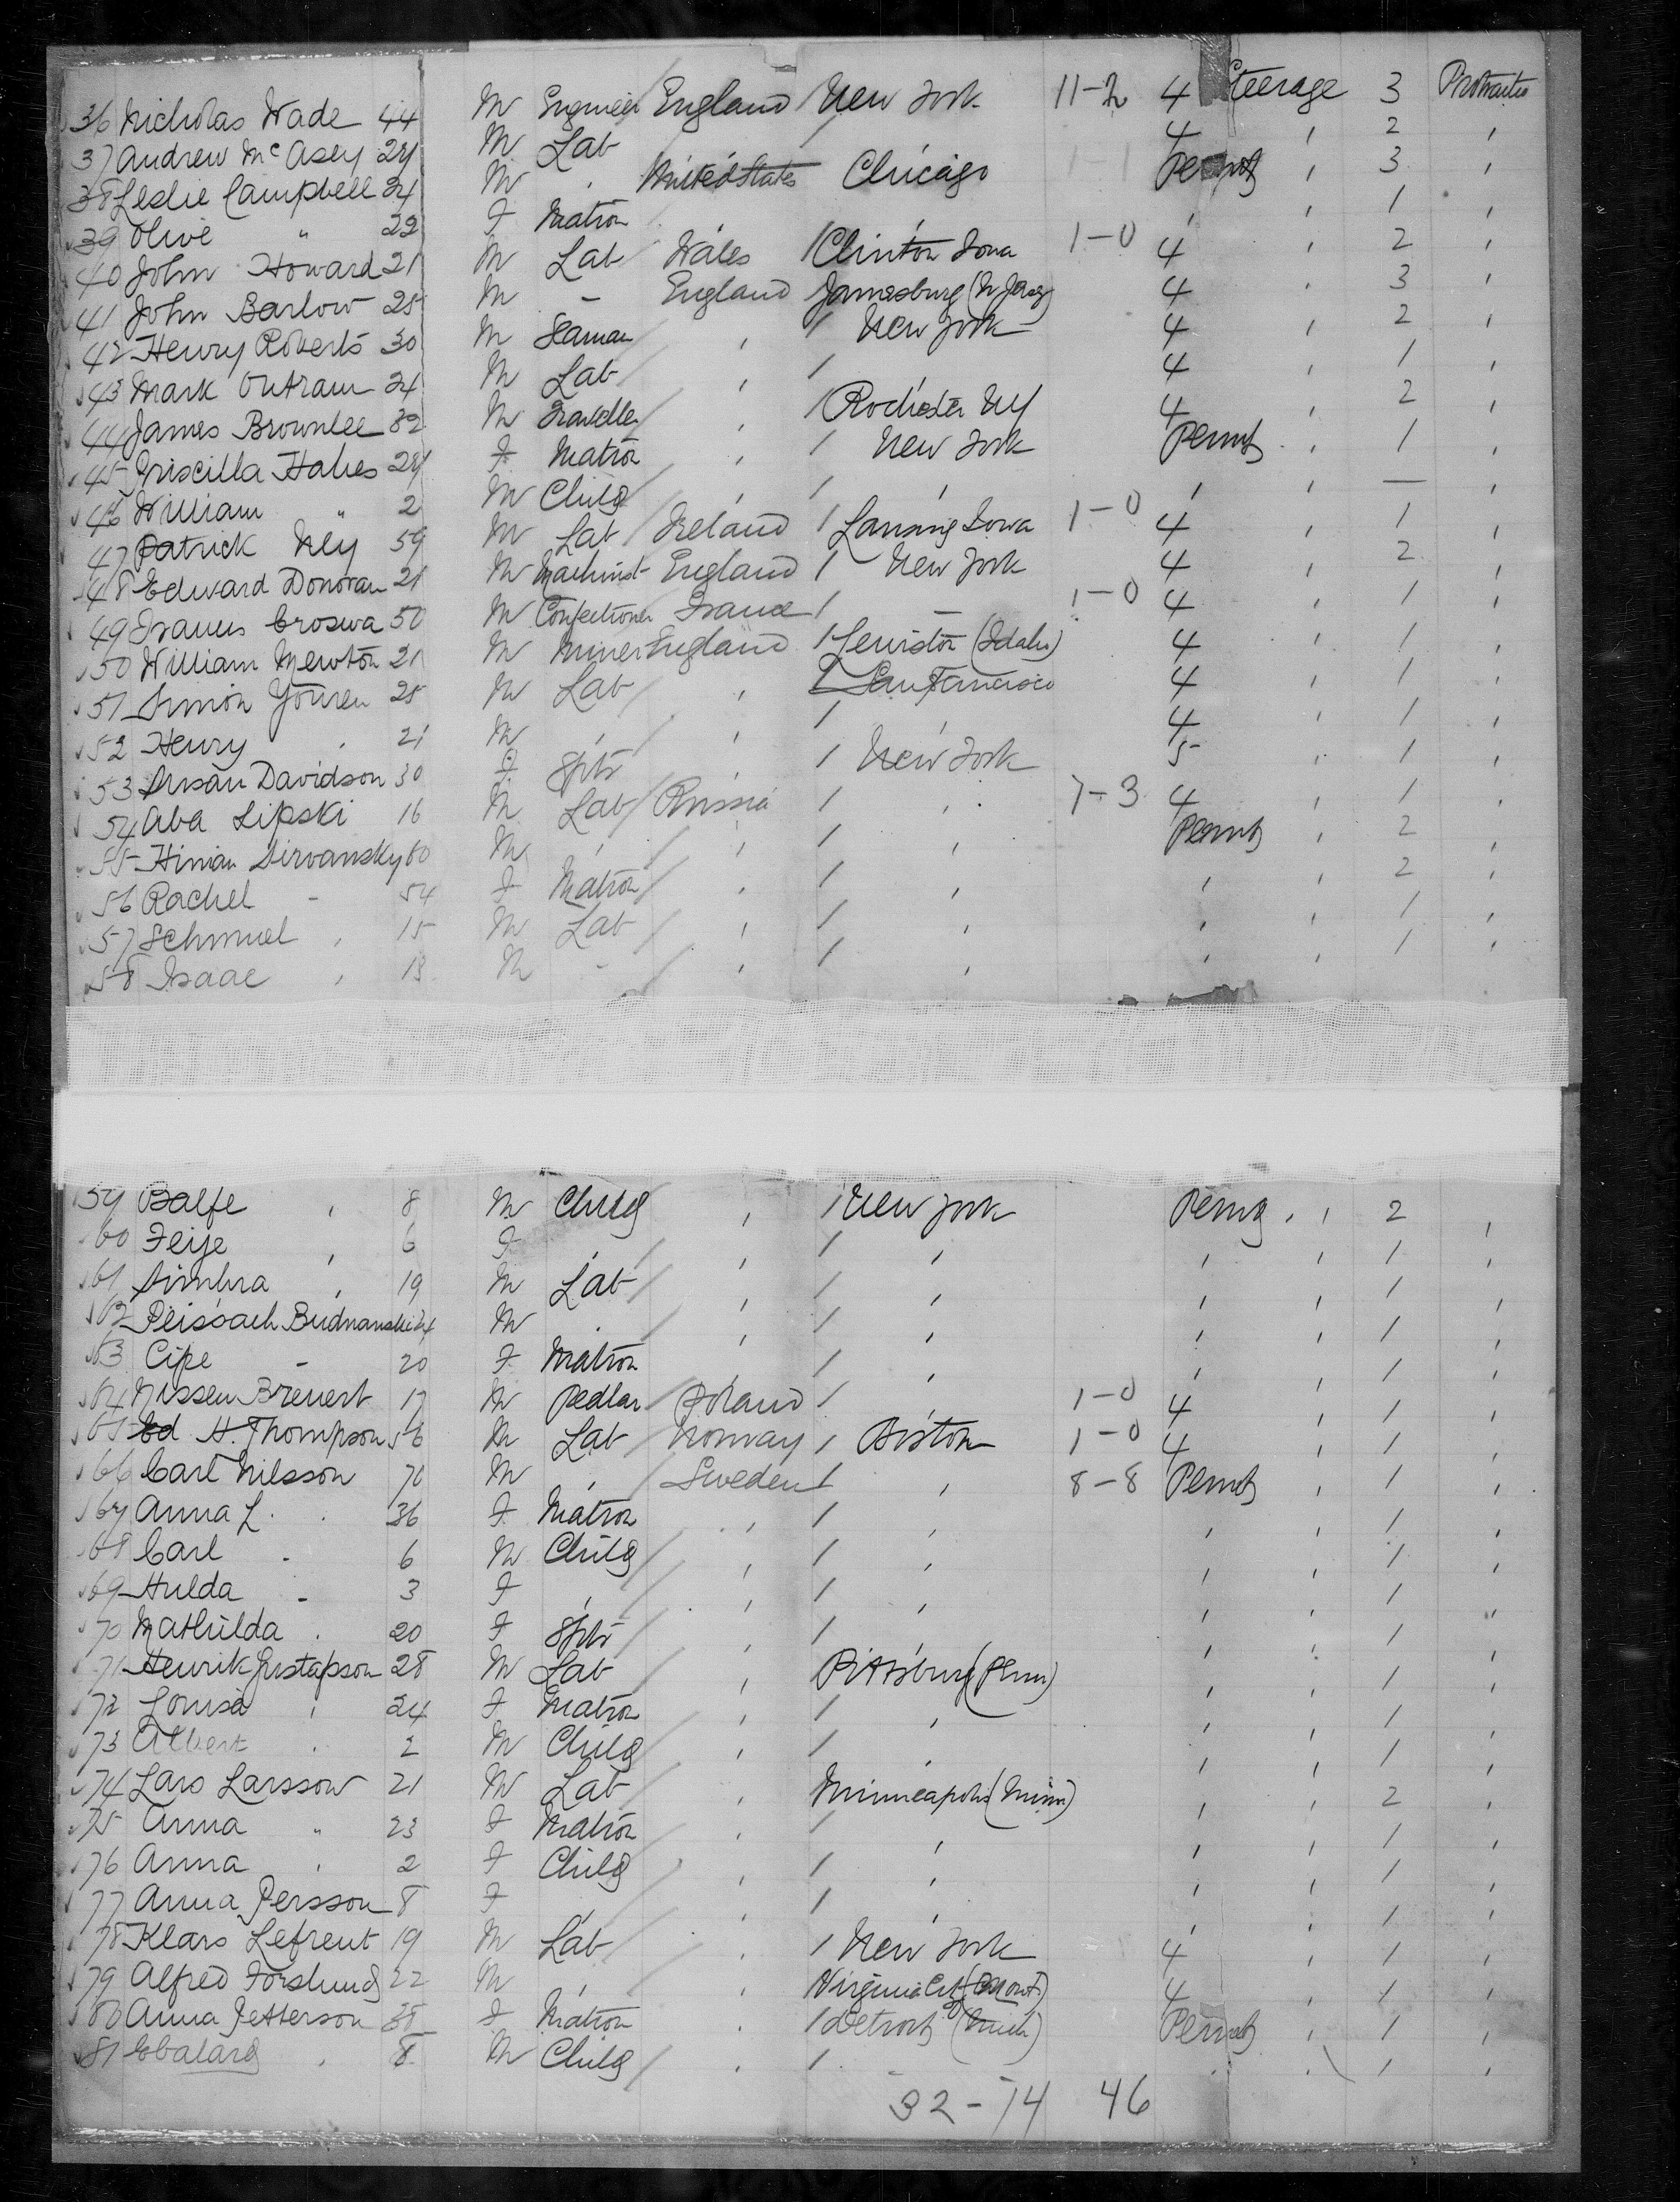 36 Nicholas Wade 44 M Engineer England New York 11-2 4 Steerage 3 Protracted
37 Andrew McAsey 24 M Lab " " 4 " 2 "
38 Leslie Campbell 34 M " United States Chicago 3 "
39 Olive " 22 F Matron " " " " 1 "
40 John Howard 21 M Lab Wales Clinton Iowa 1-0 4 " 2 "
41 John Barlow 25 M - England Jamesburg (N Jersey) 4 " 3 "
42 Henry Roberts 30 M Seaman " New York 4 " 2 "
43 Mark Outram 24 M Lab " " 4 " 1 "
44 James Brownlee 32 M Traveller " Rochester NY 4 " 2 "
45 Priscilla 24 F Matron " New York " 1 "
46 William " 2 M Child " " " " — "
47 Patrick 59 M Lab Ireland Lansing Iowa 1-0 4 " 1 "
48 Edward Donovan 21 M Machinist England New York 4 " 2 "
49 50 M Confectioner France - 1-0 4 " 1 "
50 William Newton 21 M Miner England Lewiston (Idaho) 4 " 1 "
51 Simon Youren 25 M Lab " San Francisco 4 " 1 "
52 Henry " 21 M " " 4 " 1 "
53 Susan Davidson 30 F Sptr " New York 5 " 1 "
54 Aba Lipski 16 M Lab Russia " 7-3 4 " 1 "
55 Sirvansky 60 M " " " " 2 "
56 Rachel - 54 F Matron " " " " 2 "
57 Schmuel " 15 M Lab " " " " 1 "
58 Isaac " 13 M - " " " " 1 "
59 Balfe " 8 M Child " New York " 2 "
60 Feije " 6 F " " " " " 1 "
61 " 19 M Lab " " " " 1 "
62 Peissach Budnanski 24 M " " " " " 1 "
63 Cipe - 20 F Matron " " " " 1 "
64 Nissen 17 M Pedlar Poland " 1-0 4 " 1 "
65 H. Thompson 56 M Lab Norway Boston 1-0 4 " 1 "
66 Carl Nilsson 70 M " Sweden " 8-8 " 1 "
67 Anna L. " 36 F Matron " " " " 1 "
68 Carl - 6 M Child " " " " 1 "
69 Hulda - 3 F " " " " " 1 "
70 Mathilda " 20 F Sptr " " " " 1 "
71 Henrik Gustafson 28 M Lab " Pittsburg (Penn) " " 1 "
72 Lousia " 24 F Matron " " " " 1 "
73 Albert " 2 M Child " " " " 1 "
74 Lars Larsson 21 M Lab " Minneapolis (Minn) " " 2 "
75 Anna " 23 F Matron " " " " 1 "
76 Anna " 2 F Child " " " " 1 "
77 Anna Persson 8 F " " " " " 1 "
78 Klars Lefrent 19 M Lab " New York 4 " 1 "
79 Alfred Forslund 22 M " " Virginia City (Mont) 4 " 1 "
80 Anna Petterson 38 F Matron " Detroit (Mich) " 1 "
81 " 8 M Child " " " " 1 "
32-14 46